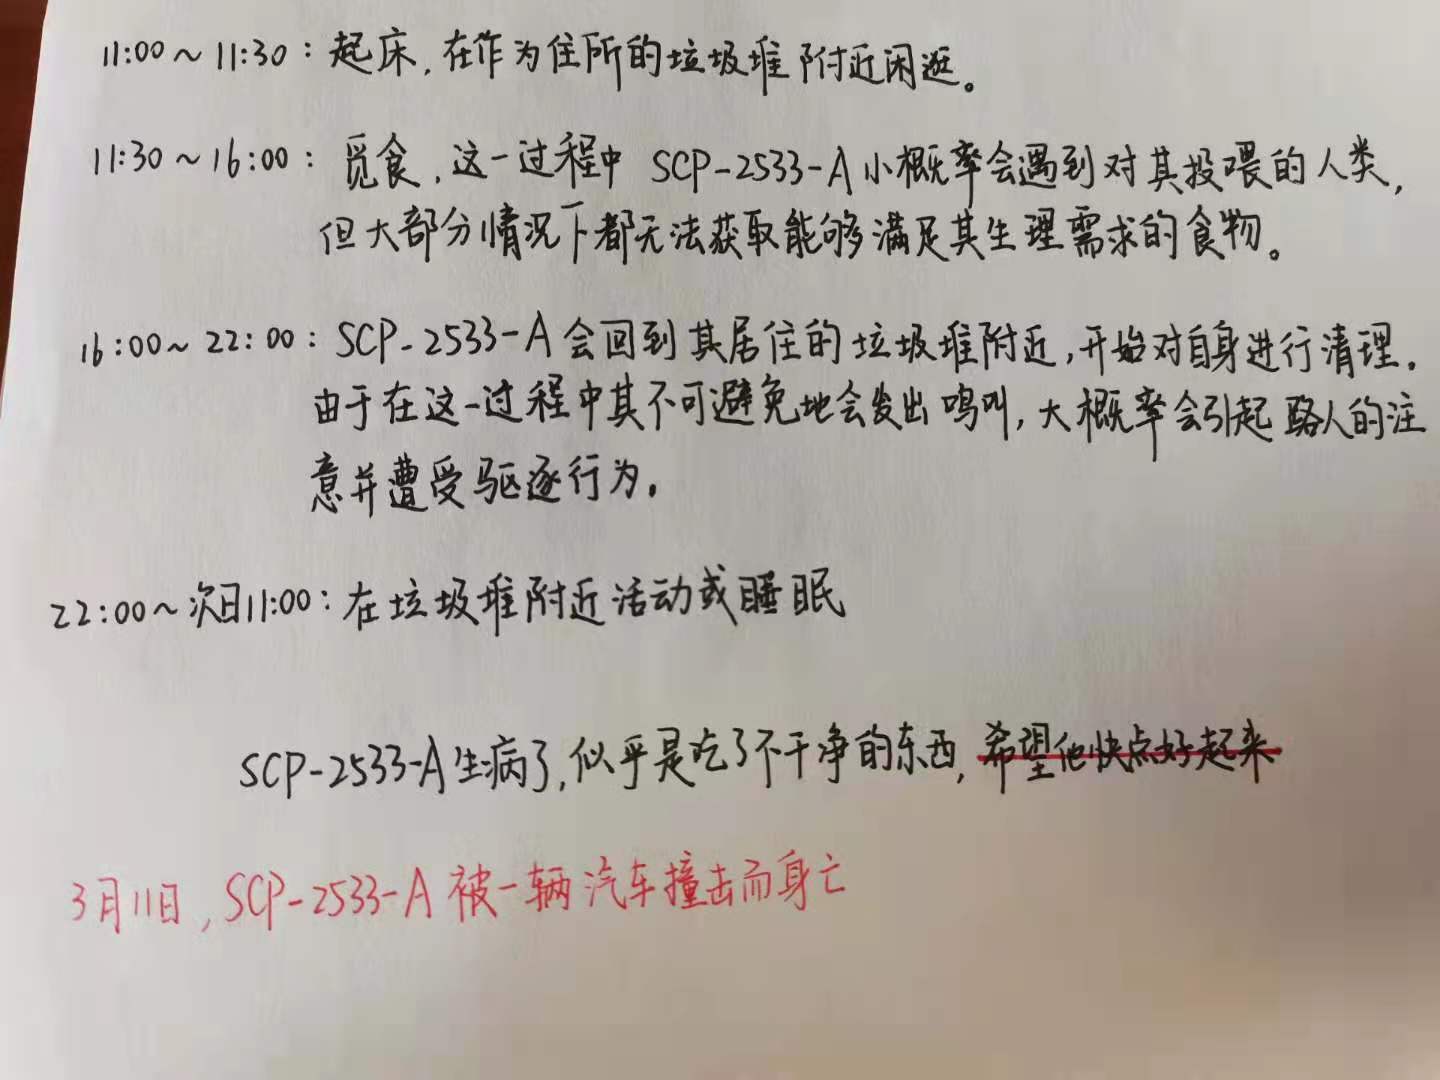 11:00～11:30：起床，在作为住所的垃圾堆附近闲逛。
11:30～16:00：觅食，这一过程中 SCP-2533-A小概率会遇到对其投喂的人类，
但大部分情况下都无法获取能够满足其生理需求的食物。
16:00～22:00：SCP-2533-A会回到其居住的垃圾堆附近，开始对自身进行清理。
由于在这一过程中其不可避免地会发出鸣叫，大概率会引起路人的注
意并遭受驱逐行为。
22:00～次日11:00：在垃圾堆附近活动或睡眠
SCP-2533-A生病了，似乎是吃了不干净的东西，希望他快点好起来
3月11日，SCP-2533-A被一辆汽车撞击而身亡